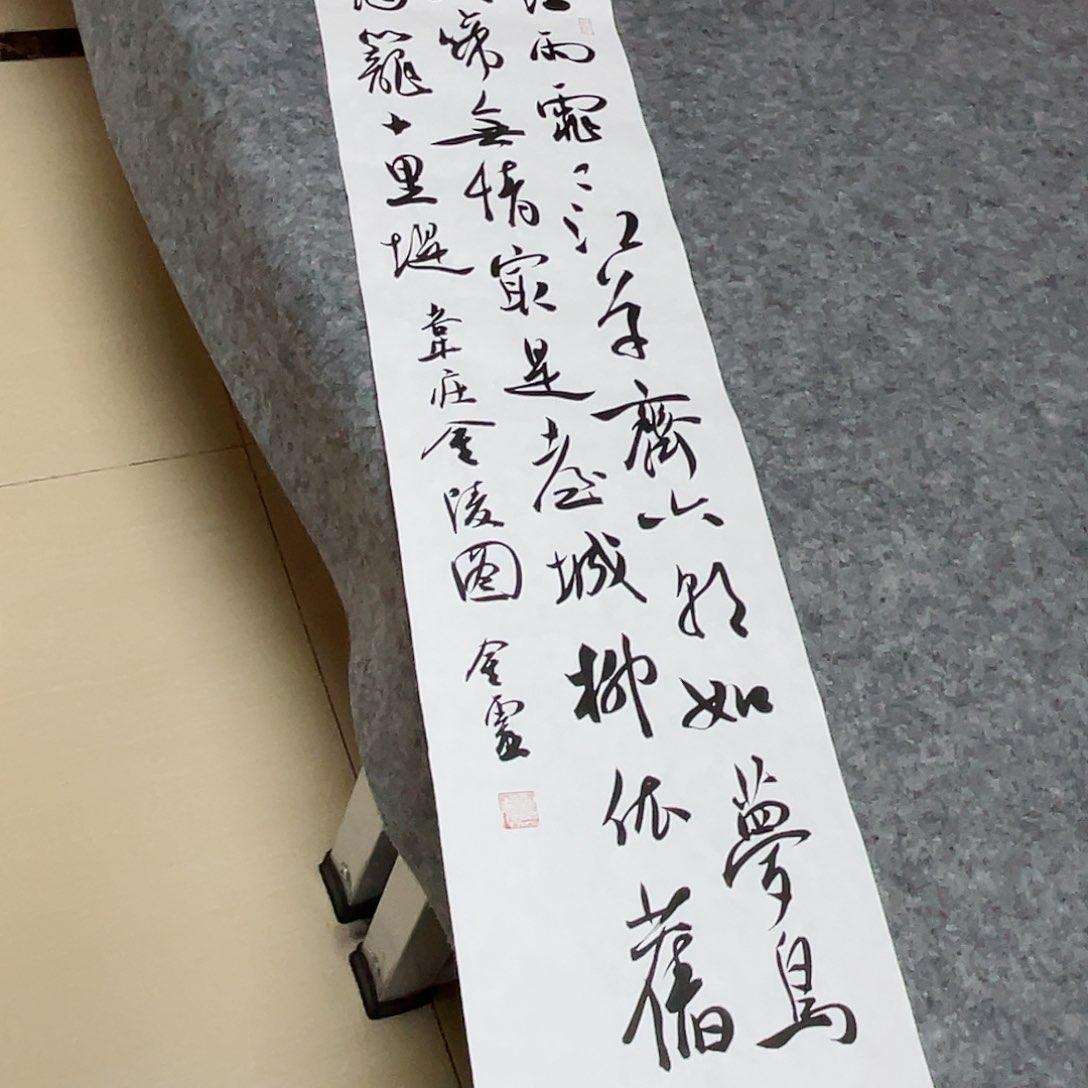 江雨霏〻江草齊六朝如夢鳥
啼無情最是臺城柳依舊
籠十里堤 韋庄金陵圖 金